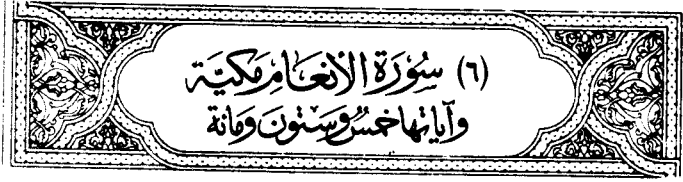 (٦) سُورَة الأنعَامِ مَكيَّة
وَآياتها خمسٌ وَسَتونَ وَمائة